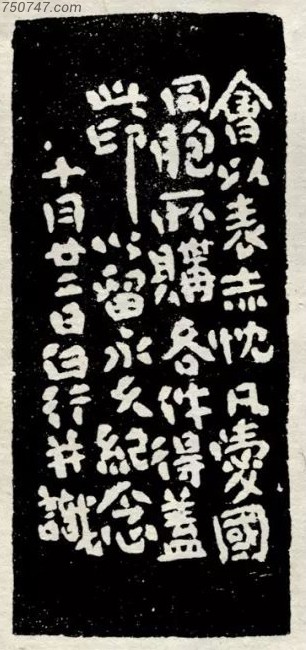 750747.com
會以表赤忱凡愛國
同胞所購各件得蓋
此印以留永久紀念
十月廿二日白行并識